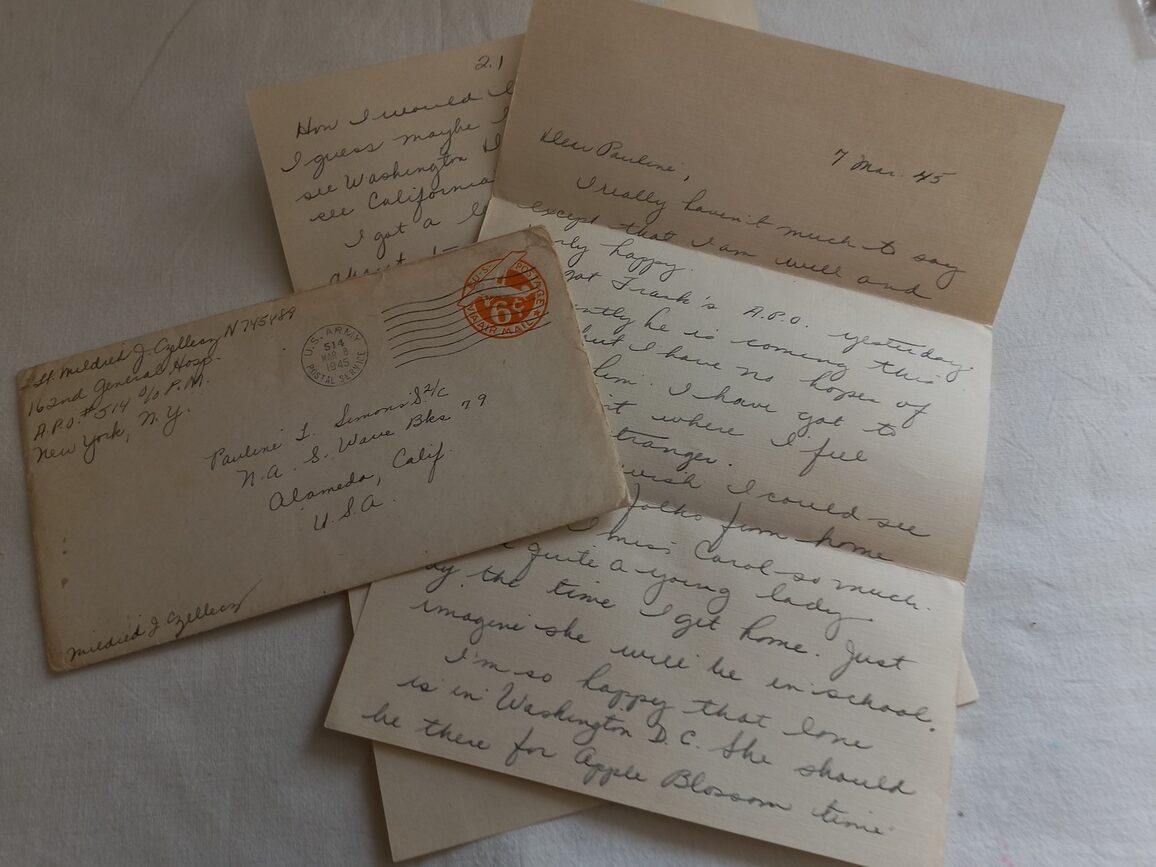 Lt. Mildred J. Czellecz N745489
162nd General Hosp.
A.P.O. #514 c/o P.M.
New York, N.Y.
U.S. ARMY
514
MAR 8
1945
POSTAL SERVICE
U.S. POSTAGE
6¢
VIA AIR MAIL
Pauline L. Simons S2/c
N.A.S. Wave Bks 79
Alameda, Calif.
U.S.A.
Mildred J Czellecz
7 Mar. 45
Dear Pauline,
I really haven't much to say
except that I am well and
happy.
Frank's A.P.O. yesterday.
he is coming this
but I have no hopes of
him. I have got to
where I feel
I could see
folks from home
I miss Carol so much.
quite a young lady
by the time I get home. Just
imagine she will be in school.
I'm so happy that Ione
is in Washington D.C. She should
be there for Apple Blossom time
2.
How I would
I guess maybe I
see Washington D
see California
I got a
about